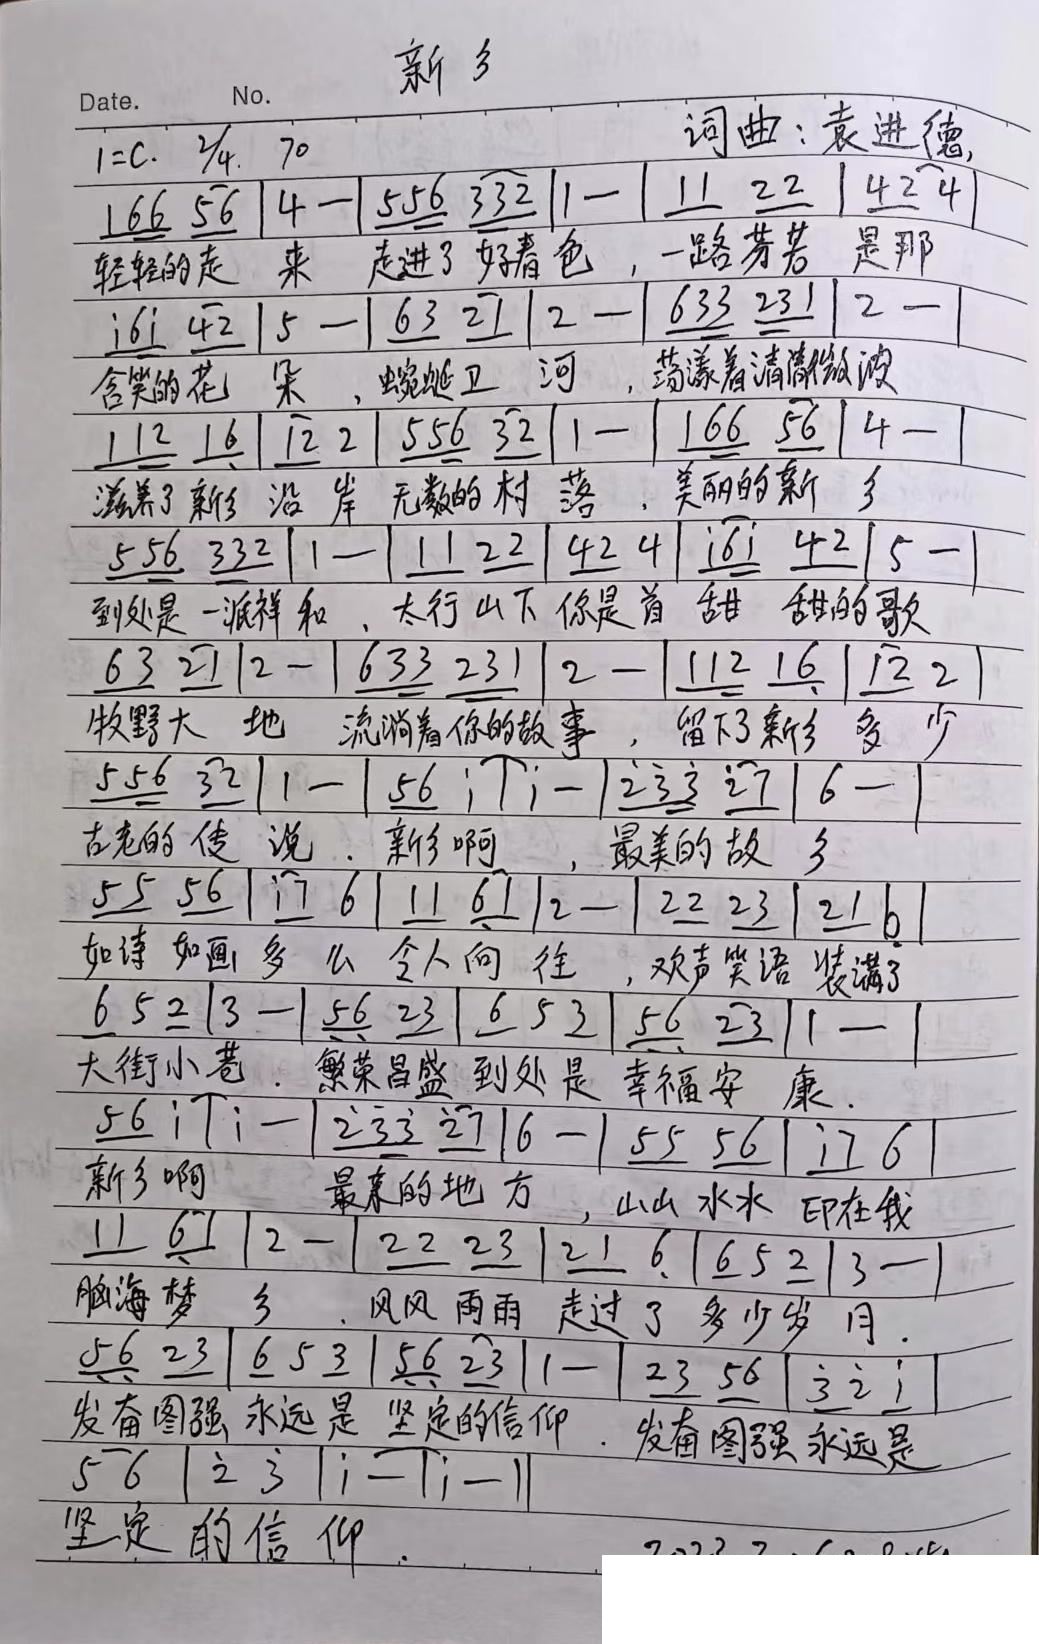 新乡
Date. No.
1=C. 2/4. 70 词曲：袁进德
166 56 | 4 — | 556 332 | 1 — | 11 22 | 42 4 |
轻轻的走 来 走进了好春色，一路芬芳 是那
i6i 42 | 5 — | 63 21 | 2 — | 633 231 | 2 — |
含笑的花 朵，蜿蜒卫 河，荡漾着清澈微波
112 16 | 12 2 | 556 32 | 1 — | 166 56 | 4 — |
滋养了新乡 沿 岸 无数的村 落，美丽的新 乡
556 332 | 1 — | 11 22 | 42 4 | i6i 42 | 5 — |
到处是一派祥和，太行山下你是首 甜 甜的歌
63 21 | 2 — | 633 231 | 2 — | 112 16 | 12 2 |
牧野大 地 流淌着你的故事，留下了新乡 多 少
556 32 | 1 — | 56 i | i — | 233 27 | 6 — |
古老的传 说．新乡啊，最美的故 乡
55 56 | i7 6 | 11 61 | 2 — | 22 23 | 21 6 |
如诗 如画 多 么 令人向 往，欢声笑语 装满了
6 5 2 | 3 — | 56 23 | 6 5 3 | 56 23 | 1 — |
大街小巷．繁荣昌盛 到处是 幸福安 康．
56 i | i — | 233 27 | 6 — | 55 56 | i7 6 |
新乡啊 最亲的地 方，山山 水水 印在我
11 61 | 2 — | 22 23 | 21 6 | 6 5 2 | 3 — |
脑海梦 乡，风风雨雨 走过了 多少岁 月．
56 23 | 6 5 3 | 56 23 | 1 — | 23 56 | 3 2 i |
发奋图强 永远是 坚定的信仰．发奋图强永远是
5 6 | 2 3 | i — | i — ||
坚定 的信 仰．